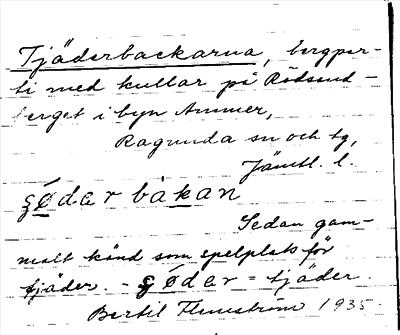 Tjäderbackarna, bergpar-
ti med kullar på Rödsund-
berget i byn Ammer,
Ragunda sn och tg,
Jämtl. l.
çødarbakan
Sedan gam-
malt känd som spelplats för
tjäder. - çødar = tjäder.
Bertil Flemström 1935.